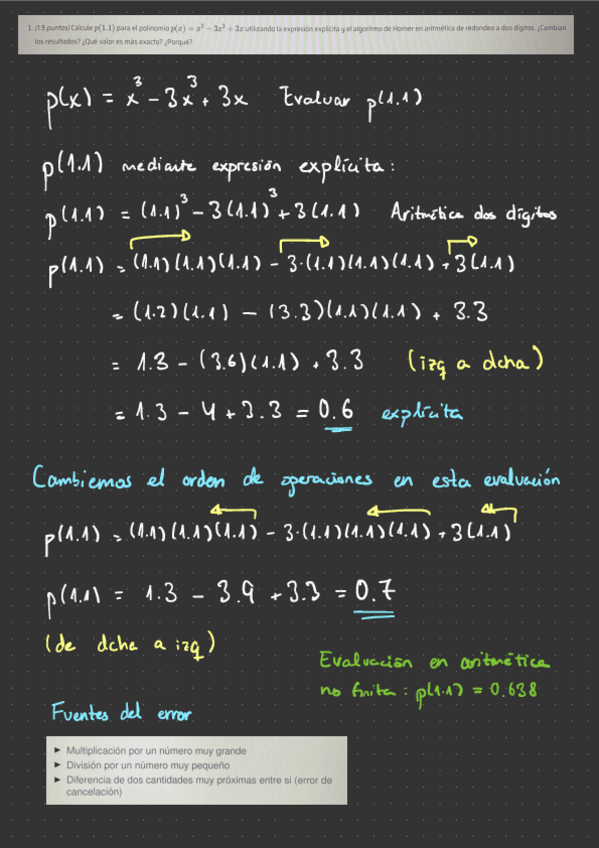 1. (1.5 puntos) Calcule p(1.1) para el polinomio p(x) = x³ − 3x³ + 3x utilizando la expresión explícita y el algoritmo de Horner en aritmética de redondeo a dos dígitos. ¿Cambian
los resultados? ¿Qué valor es más exacto? ¿Porqué?
p(x) = x³ - 3x³ + 3x Evaluar p(1.1)
p(1.1) mediante expresión explícita:
p(1.1) = (1.1)³ - 3(1.1)³ + 3(1.1) Aritmética dos dígitos
p(1.1) = (1.1)(1.1)(1.1) - 3·(1.1)(1.1)(1.1) + 3(1.1)
= (1.2)(1.1) - (3.3)(1.1)(1.1) + 3.3
= 1.3 - (3.6)(1.1) + 3.3 (izq a dcha)
= 1.3 - 4 + 3.3 = 0.6 explícita
Cambiemos el orden de operaciones en esta evaluación
p(1.1) = (1.1)(1.1)(1.1) - 3·(1.1)(1.1)(1.1) + 3(1.1)
p(1.1) = 1.3 - 3.9 + 3.3 = 0.7
(de dcha a izq)
Evaluación en aritmética
no finita: p(1.1) = 0.638
Fuentes del error
► Multiplicación por un número muy grande
► División por un número muy pequeño
► Diferencia de dos cantidades muy próximas entre si (error de
cancelación)